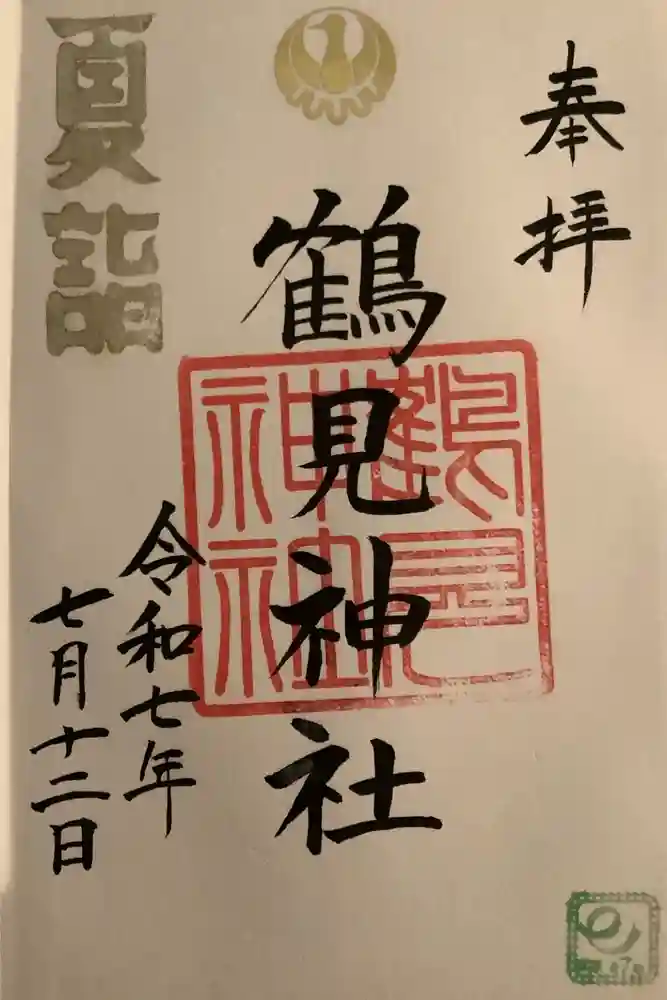 奉拝
鶴見神社
鶴見神社
令和七年
七月十二日
夏詣